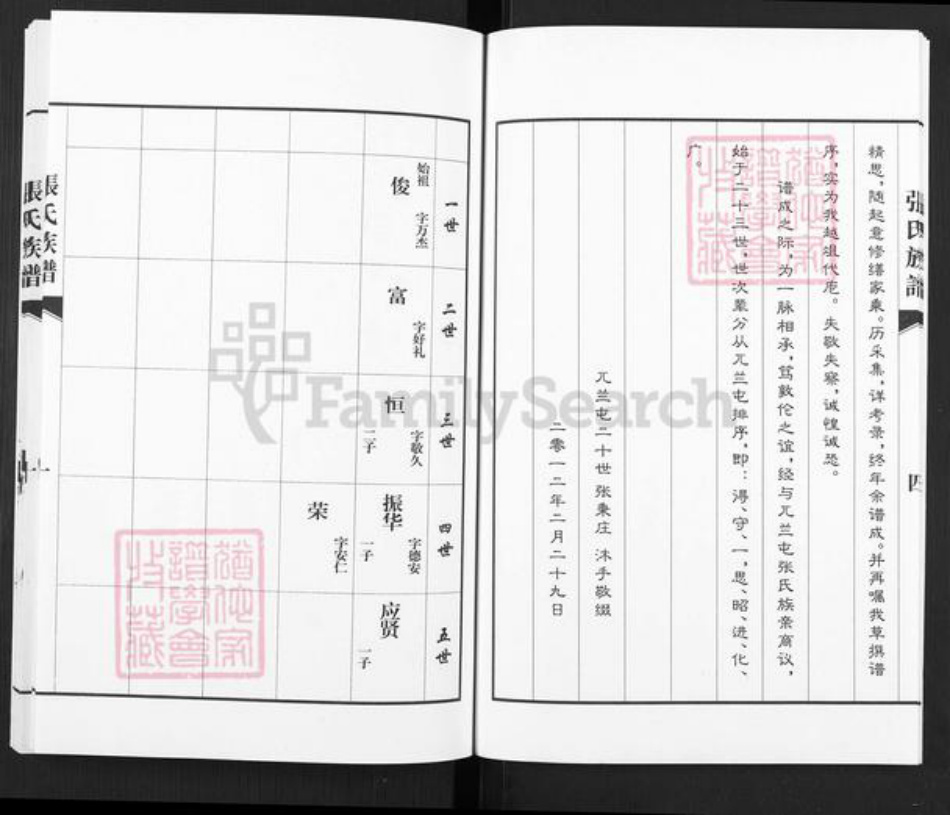 張氏族譜
四
精思，随起意修缮家乘。历采集，详考录，终年余谱成。并再嘱我草撰谱
序，实为我越俎代庖。失敬失察，诚惶诚恐。
谱成之际，为一脉相承，笃敦伦之谊，经与兀兰屯张氏族亲商议，
始于二十三世，世次辈分从兀兰屯排序，即：得、守、一，思、昭、进、化、
广。
兀兰屯二十世 张秉庄 沐手敬缀
二零一二年二月二十九日
一世
始祖
俊
字万杰
二世
富
字好礼
三世
恒
字敬久
二子
四世
振华
字德安
一子
荣
字安仁
五世
应贤
一子
張氏族譜
張氏族譜
FamilySearch